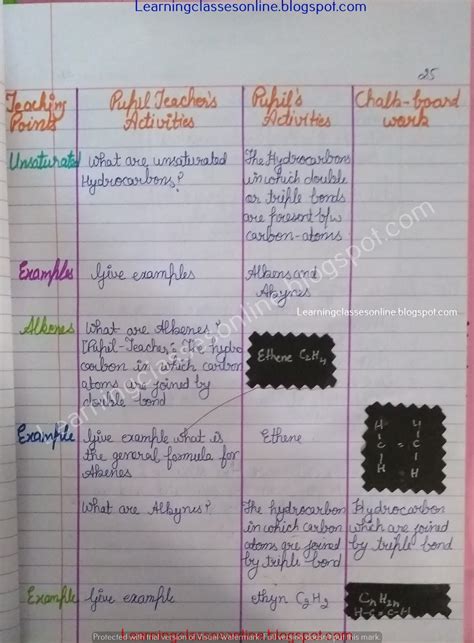 Learningclassesonline.blogspot.com
25
Teaching Points
Pupil Teacher's Activities
Pupil's Activities
Chalk-board work
Unsaturated
What are unsaturated
Hydrocarbons?
The Hydrocarbons
in which double
or triple bonds
are present b/w
carbon-atoms
Examples
Give examples
Alkens and
Alkynes
Learningclassesonline.blogspot.com
Learningclassesonline.blogspot.com
Alkenes
What are Alkenes?
[Pupil-Teacher:] The hydro
carbon in which carbon
atoms are joined by
double bond
Ethene C2H4
Example
Give example what is
the general formula for
Alkenes
Ethene
H H
C = C
H H
What are Alkynes?
The hydrocarbon
in which carbon
atoms are joined
by triple bond
Hydrocarbon
which are joined
by triple bond
Example
Give example
ethyn C2H2
CnH2n
H-C≡C-H
Protected with trial version of Visual Watermark. Full version doesn't put this mark.